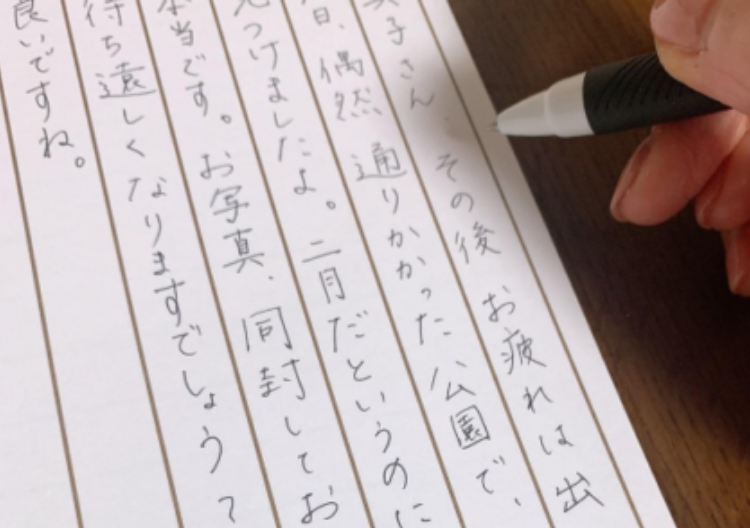 子さん、その後お疲れは出
日、偶然通りかかった公園で、
つけましたよ。二月だというのに
本当です。お写真、同封してお
待ち遠しくなりますでしょう
良いですね。